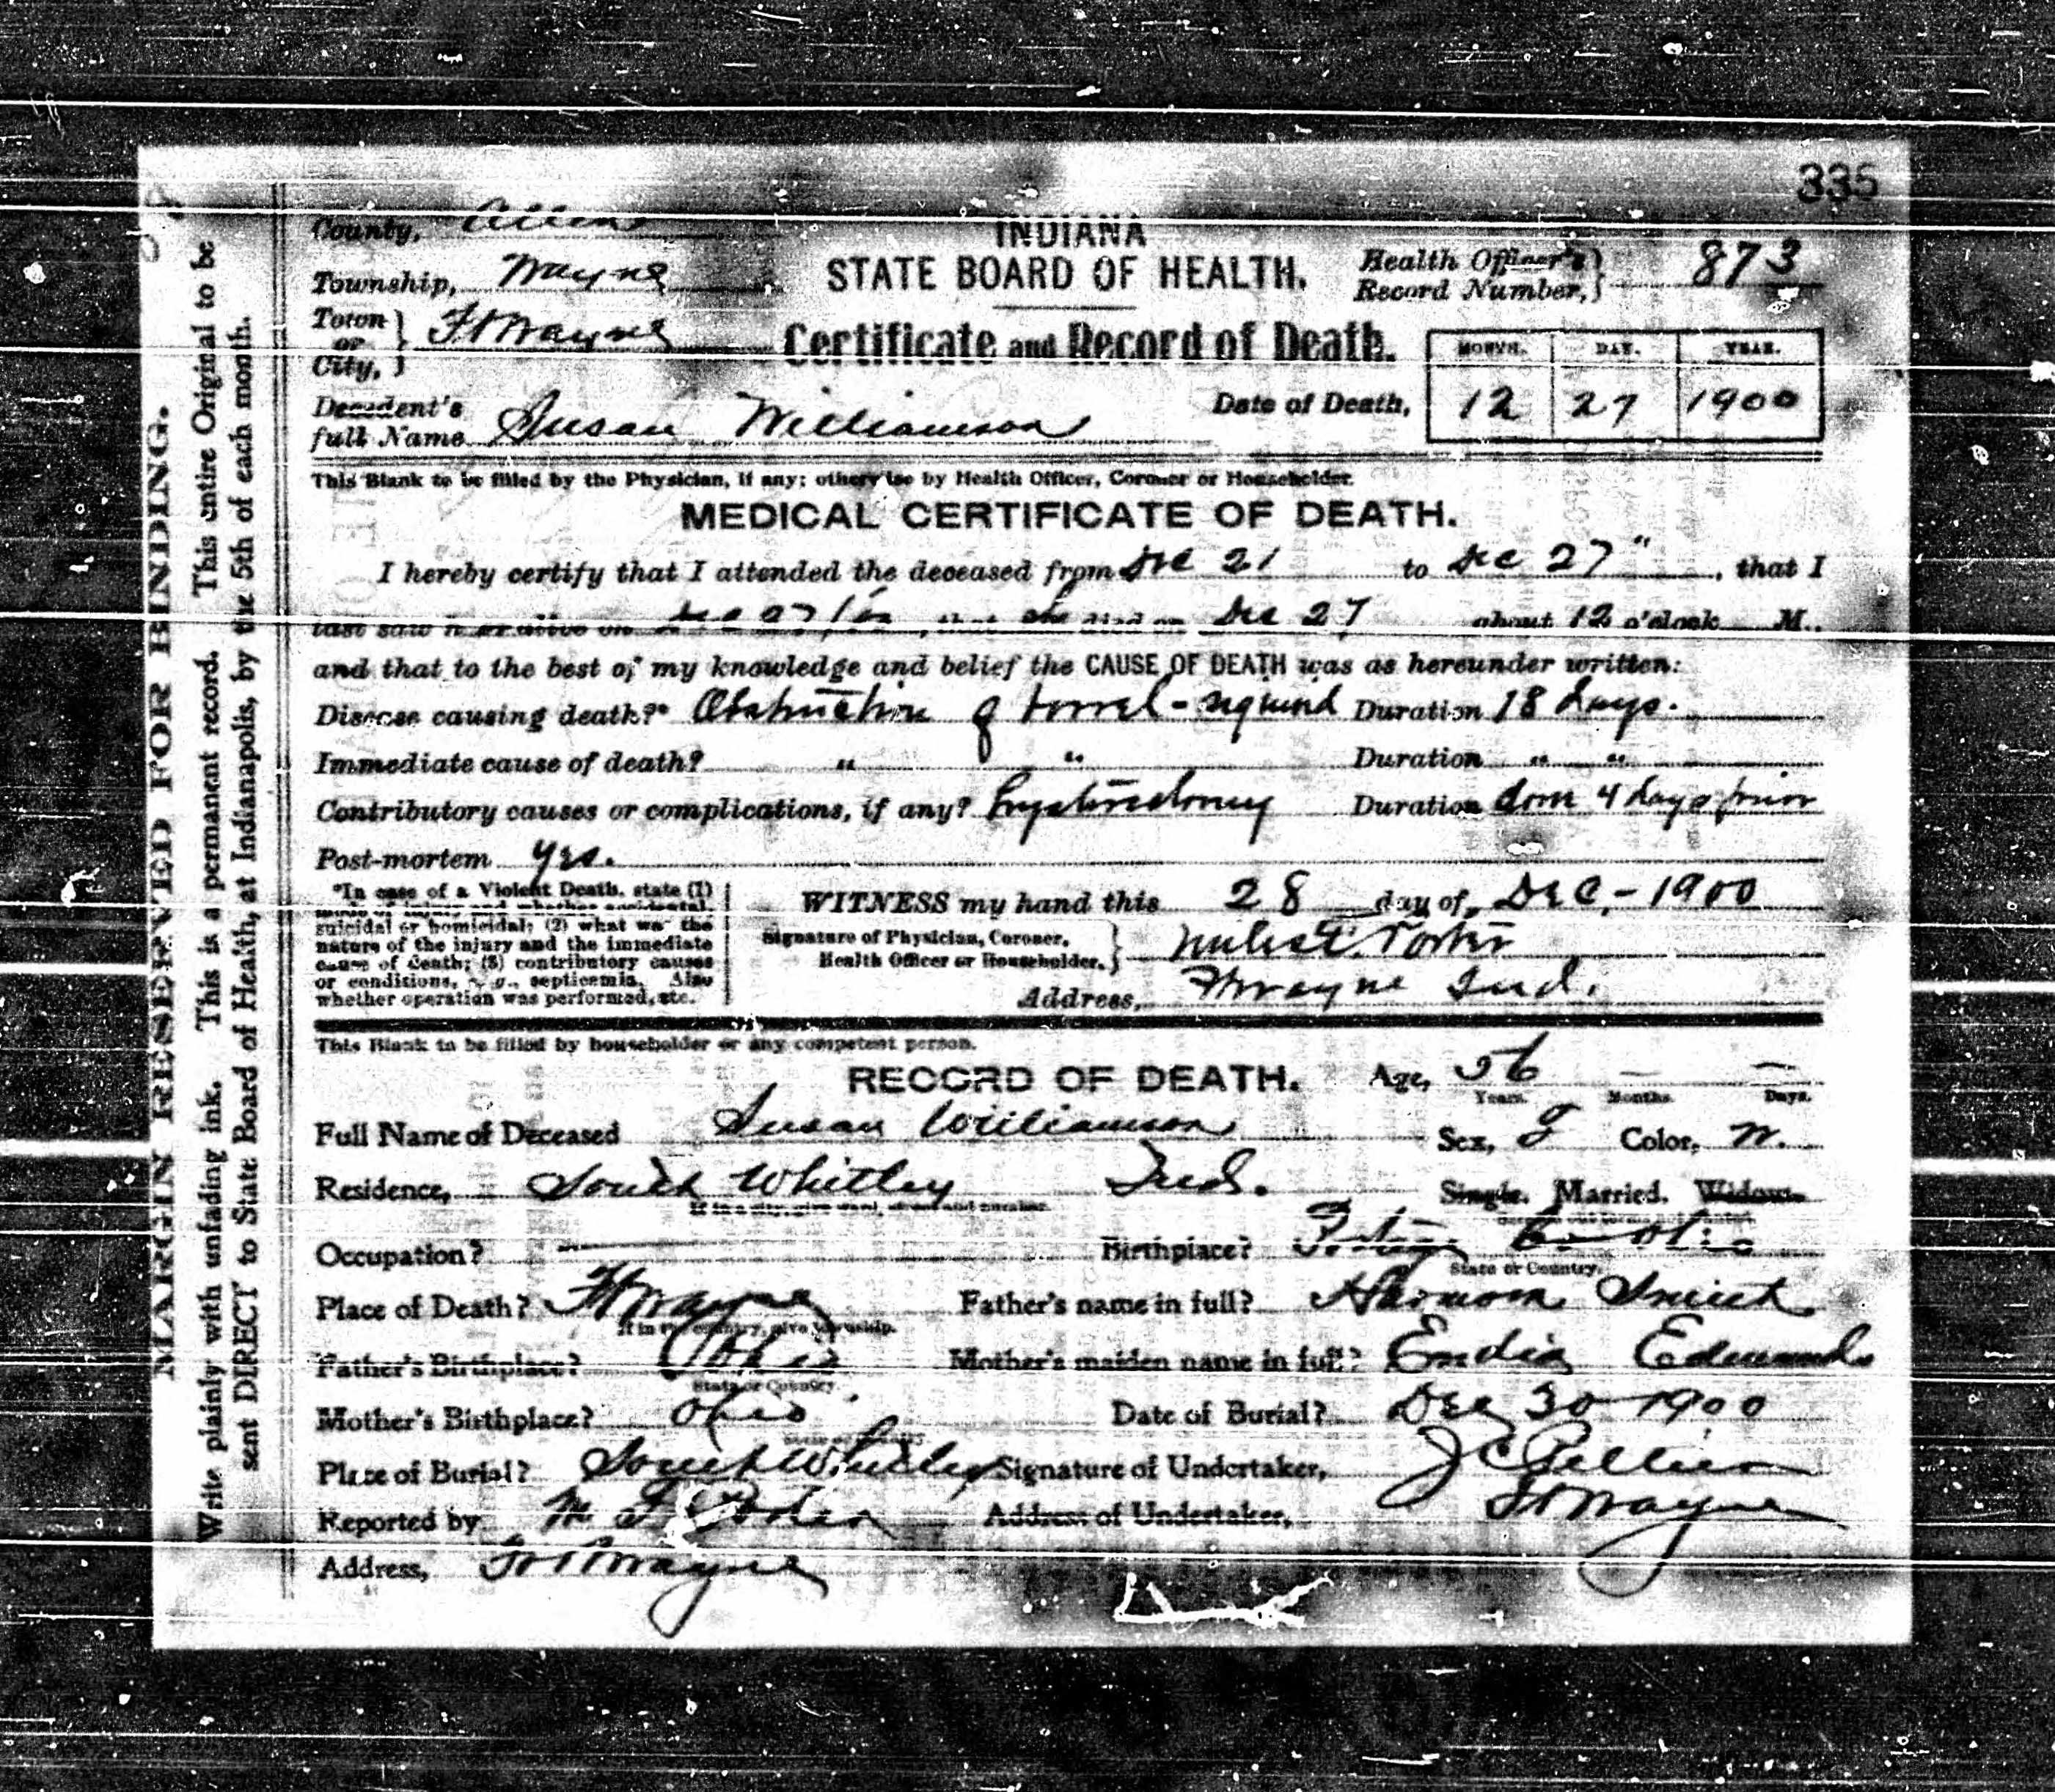 335
County, Allen
INDIANA
Township, Wayne
STATE BOARD OF HEALTH.
Health Officer's Record Number, 873
Town or City, Ft Wayne
Certificate and Record of Death.
MONTH. DAY. YEAR.
Decedent's full Name Susan Williamson
Date of Death, 12 27 1900
This Blank to be filled by the Physician, if any; otherwise by Health Officer, Coroner or Householder.
MEDICAL CERTIFICATE OF DEATH.
I hereby certify that I attended the deceased from Dec 21 to Dec 27", that I
last saw h er alive on Dec 27, that she died on Dec 27 about 12 o'clock M.,
and that to the best of my knowledge and belief the CAUSE OF DEATH was as hereunder written:
Disease causing death?* Obstruction of bowel - Duration 18 days.
Immediate cause of death? " " Duration " "
Contributory causes or complications, if any? Duration 4 days prior
Post-mortem yes.
*In case of a Violent Death, state (1)
mode of injury and whether accidental,
suicidal or homicidal; (2) what was the
nature of the injury and the immediate
cause of death; (3) contributory causes
or conditions, e. g., septicemia. Also
whether operation was performed, etc.
WITNESS my hand this 28 day of, Dec, - 1900
Signature of Physician, Coroner,
Health Officer or Householder. Porter
Address, Ft Wayne Ind.
This Blank to be filled by householder or any competent person.
RECORD OF DEATH. Age, 56 — —
Years. Months. Days.
Full Name of Deceased Susan Williamson Sex, F Color, W.
Residence, South Whitley Ind. Single. Married. Widow.
If in a city, give ward, street and number.
Occupation? — Birthplace?
State or Country.
Place of Death? Ft Wayne Father's name in full? Harmon
If in the country, give township.
Father's Birthplace? Ohio Mother's maiden name in full? Edwards
State or Country.
Mother's Birthplace? Ohio Date of Burial? Dec 30 1900
Place of Burial? South Whitley Signature of Undertaker, J C Peltier
Reported by M F Porter Address of Undertaker, Ft Wayne
Address, Ft Wayne
MARGIN RESERVED FOR BINDING.
Write plainly with unfading ink. This is a permanent record. This entire Original to be
sent DIRECT to State Board of Health, at Indianapolis, by the 5th of each month.